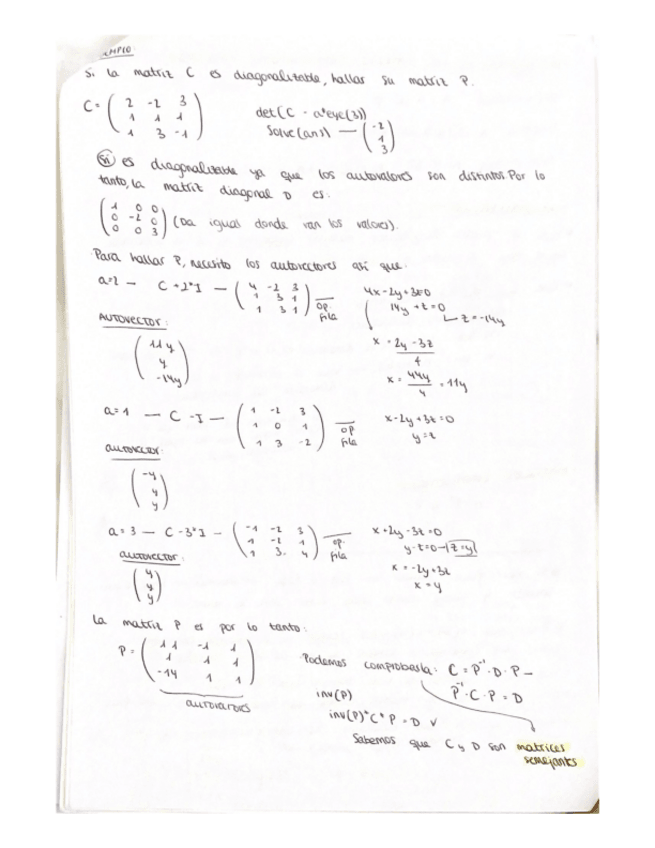 EMPLO:
Si la matriz C es diagonalizable, hallar su matriz P.
C = ( 2 -2 3
1 1 1
1 3 -1 )
det(C - a*eye(3))
Solve(ans) — ( -2
1
3 )
Si es diagonalizable ya que los autovalores son distintos. Por lo
tanto, la matriz diagonal D es:
( 1 0 0
0 -2 0
0 0 3 ) (Da igual donde van los valores).
Para hallar P, necesito los autovectores así que:
a=2 — C+2*I — ( 4 -2 3
1 3 1
1 3 1 ) op. fila
4x-2y+3z=0
14y+z=0
z=-14y
AUTOVECTOR:
( 11y
y
-14y )
x = 2y-3z / 4
x = 44y / 4 = 11y
a=1 — C-I — ( 1 -2 3
1 0 1
1 3 -2 ) op fila
x-2y+3z=0
y=z
autovector:
( -y
y
y )
a=3 — C-3*I — ( -1 -2 3
1 -2 1
1 3 4 ) op. fila
x+2y-3z=0
y-z=0 → z=y
autovector:
( y
y
y )
x = -2y+3z
x = y
La matriz P es por lo tanto:
P = ( 11 -1 1
1 1 1
-14 1 1 )
autovalores
Podemos comprobarla: C = P⁻¹·D·P —
P⁻¹·C·P = D
inv(P)
inv(P)*C*P = D ✓
Sabemos que C y D son matrices
semejantes